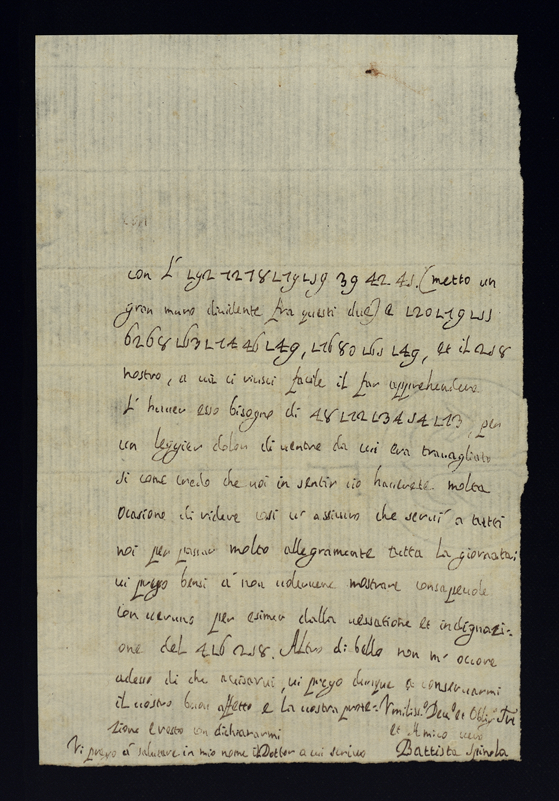 con L' L92 72 78 L79 L59 39 42 45. (metto un
gran muro diuidente fra questi due) e L20 L79 L55
6268 L63 L74 46 L49, L1680 L49, et il 258
nostro, a cui ci riuscì facile il far apprehendere
L' hauer esso bisogno di 48 L73, per
un leggier dolor di uentre da cui era trauagliato
si come credo che uoi in sentir ciò hauerete molta
ocasione di ridere così u' assicuro che seruì a tutti
noi per passar molto allegramente tutta la giornata;
ui prego bensì a' non uoleruene mostrare consapeuole
con ueruno per esimer dalla uessatione et indignazi-
one del 258. Altro di bello non m' occore
adesso di che auisarui, ui prego dunque a conseruarmi
il uostro buon affetto e la uostra prote- Deu.o et Obligo.
zione e resto con dichiararmi et Amico uero
Vi prego a' salutare in mio nome il Dottor a cui scriuo Battista Spinola